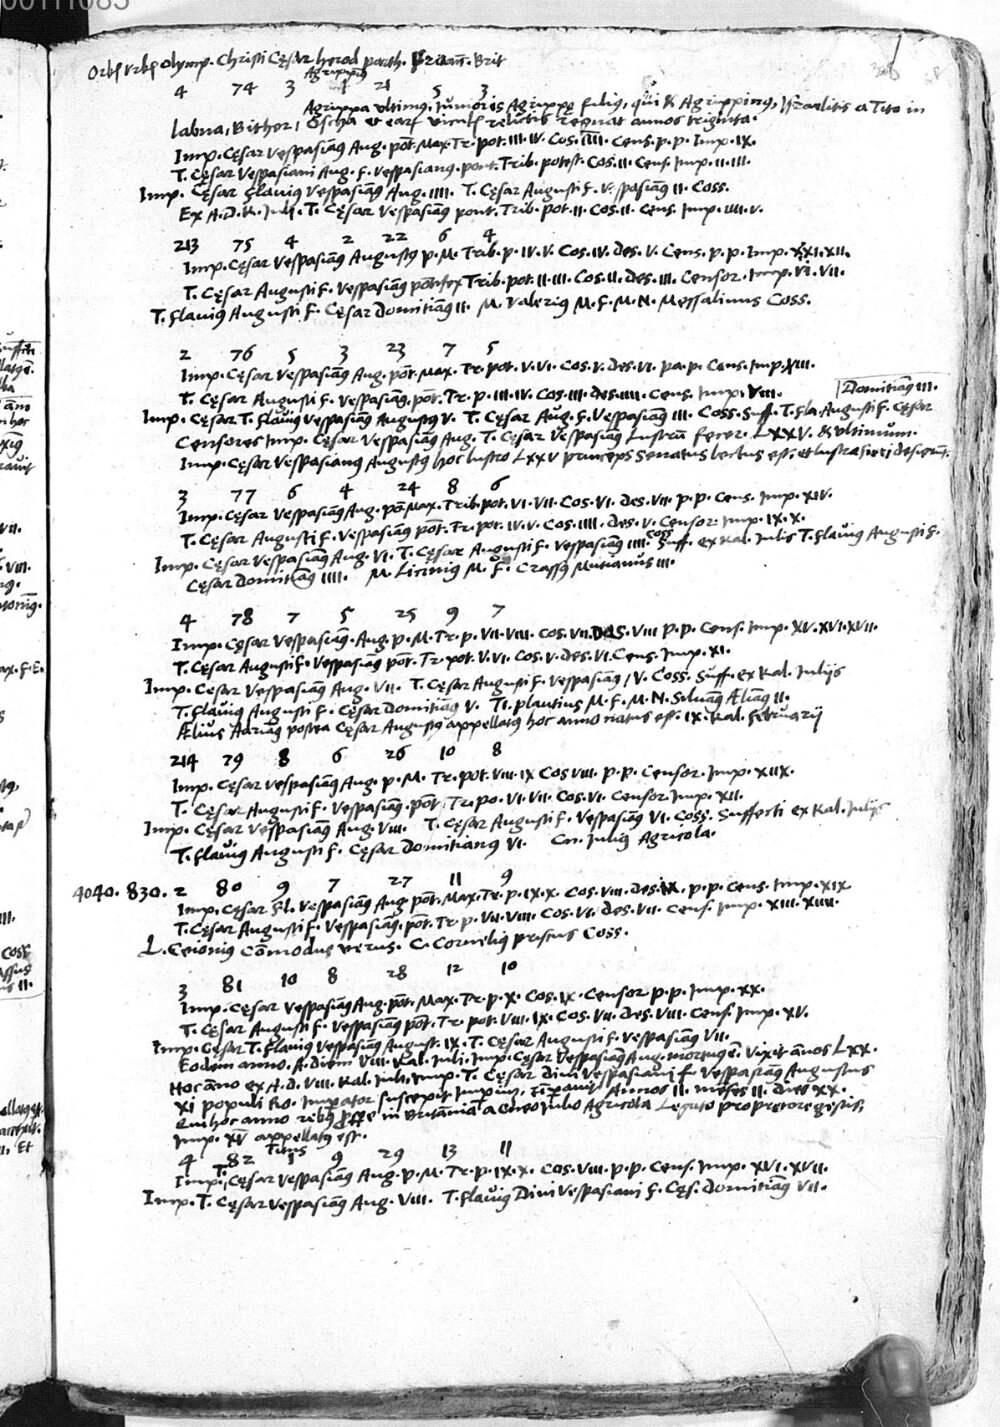 Orbis Vrbis Olymp. Christi Cęsar herod parth. Britañ. Brit
Agrippinus
4 74 3 1 21 5 3
Agrippa ultimus, Iunioris Agrippę filius, qui & Agrippinus, Israelitis a Tito in
labna, Bither, Oscha et earum viculis relictis regnat annos triginta.
Imp. Cęsar Vespasiāꝰ Aug. pōt. Max. Tr. pot. III. IV. Cos. IIII. Cens. p. p. Imp. IX.
T. Cęsar Vespasiani Aug. F. Vespasianꝰ. pont. Trib. potest. Cos. II. Cens. Imp. II. III.
Imp. Cęsar Flavius Vespasiāꝰ Aug. IIII. T. Cęsar Augusti F. Vespasiāꝰ II. Coss.
Ex A. D. K. Iuli. T. Cęsar Vespasiāꝰ pont. Trib. pot. II. Cos. II. Cens. Imp. IIII. V.
213 75 4 2 22 6 4
Imp. Cęsar Vespasiāꝰ Augustꝰ p. M. Trib. p. IV. V. Cos. IV. des. V. Cens. p. p. Imp. XI. XII.
T. Cęsar Augusti F. Vespasiāꝰ pōtifex Trib. pot. II. III. Cos. II. des. III. Censor. Imp. VI. VII.
T. Flaviꝰ Augusti F. Cęsar Domitiāꝰ II. M. Valeriꝰ M. F. M. N. Messalinus Coss.
2 76 5 3 23 7 5
Imp. Cęsar Vespasiāꝰ Aug. pōt. Max. Tr. pot. V. VI. Cos. V. des. VI. pa. p. Cens. Imp. XIII.
T. Cęsar Augusti F. Vespasiāꝰ, pōt. Tr. p. III. IV. Cos. III. des. IIII. Cens. Imp. VIII.
Domitiāꝰ III.
Imp. Cęsar T. Flaviꝰ Vespasiāꝰ Augustꝰ V. T. Cęsar Aug. F. Vespasiāꝰ III. Coss. Suff. T. Fla. Augusti F. Cęsar
Censores Imp. Cęsar Vespasiāꝰ Aug. T. Cęsar Vespasiāꝰ Lustrū fecer. LXXV. & ultimum.
Imp. Cęsar Vespasianꝰ Augustꝰ hoc lustro LXXV princeps senatus lectus est,
3 77 6 4 24 8 6
Imp. Cęsar Vespasiāꝰ Aug. pō Max. Trib. pot. VI. VII. Cos. VI. des. VII. p. p. Cens. Imp. XIV.
T. Cęsar Augusti F. Vespasiāꝰ pōt. Tr. pot. IV. V. Cos. IIII. des. V. Censor. Imp. IX. X.
Imp. Cęsar Vespasiāꝰ Aug. VI. T. Cęsar Augusti F. Vespasiāꝰ IIII. Coss. Suff. ex Kal. Iulis T. Flaviꝰ Augusti F.
Cęsar Domitiāꝰ IIII. M. Liciniꝰ M. F. Crassꝰ Mutianus III.
4 78 7 5 25 9 7
Imp. Cęsar Vespasiāꝰ. Aug. p. M. Tr. p. VII. VIII. Cos. VII. DES. VIII p. p. Cens. Imp. XV. XVI. XVII.
T. Cęsar Augusti F. Vespasiāꝰ pōt. Tr. pot. V. VI. Cos. V. des. VI. Cens. Imp. XI.
Imp. Cęsar Vespasiāꝰ Aug. VII. T. Cęsar Augusti F. Vespasiāꝰ, V. Coss. Suff. ex Kal. Iulijs
T. Flaviꝰ Augusti F. Cęsar Domitiāꝰ V. Ti. Plautius M. F. M. N. Silvāꝰ Æliāꝰ II.
Ælius Adriāꝰ postea Cęsar Augustꝰ appellatꝰ hoc anno natus est. IX. Kal. Februarij
214 79 8 6 26 10 8
Imp. Cęsar Vespasiāꝰ Aug. p. M. Tr. pot. VIII. IX Cos VIII. p. p. Censor. Imp. XIIX.
T. Cęsar Augusti F. Vespasiāꝰ. pōt. Tr. po. VI. VII. Cos. VI. Censor. Imp. XII.
Imp. Cęsar Vespasiāꝰ Aug. VIII. T. Cęsar Augusti F. Vespasiāꝰ VI. Coss. Suffecti ex Kal. Iulijs
T. Flaviꝰ Augusti F. Cęsar Domitianꝰ VI. Cn. Iuliꝰ Agricola.
4040. 830. 2 80 9 7 27 11 9
Imp. Cęsar Fl. Vespasiāꝰ Aug. pōt. Max. Tr. p. IX. X. Cos. VIII. des. IX. p. p. Cens. Imp. XIX
T. Cęsar Augusti F. Vespasiāꝰ. pōt. Tr. p. VII. VIII. Cos. VI. des. VII. Cens. Imp. XIII. XIIII.
L. Ceionius Cōmodus Verus. C. Corneliꝰ Priscus Coss.
3 81 10 8 28 12 10
Imp. Cęsar Vespasiāꝰ Aug. pōt. Max. Tr. p. X. Cos. IX. Censor p. p. Imp. XX.
T. Cęsar Augusti F. Vespasiāꝰ pōt. Tr. pot. VIII. IX. Cos. VII. des. VIII. Cens. Imp. XV.
Imp. Cęsar T. Flaviꝰ Vespasiāꝰ August. IX. T. Cęsar Augusti F. Vespasiāꝰ VII.
Eodem anno. A. diem VIII. Kal. Iuli. Imp. Cęsar Vespasiāꝰ Aug. mortuꝰ ē. Vixit ānos LXX.
Hoc āno ex A. d. VIII. Kal. Iuli. Imp. T. Cęsar divi Vespasiani F. Vespasiāꝰ Augustus
XI populi Ro. Imperator suscepit Imperium, Annos II. menses II. dies XX.
Qui hoc anno rebꝰ in Britānia a Cneo Iulio Agricola Legato propretore gestis,
Imp. XV appellatꝰ est.
Titus
4 82 1 9 29 13 11
Imp. T. Cęsar Vespasiāꝰ Aug. p. M. Tr. p. IX. X. Cos. VIII. p. p. Cens. Imp. XVI. XVII.
Imp. T. Cęsar Vespasiāꝰ Aug. VIII. T. Flaviꝰ Divi Vespasiani F. Cęs. Domitiāꝰ VII.